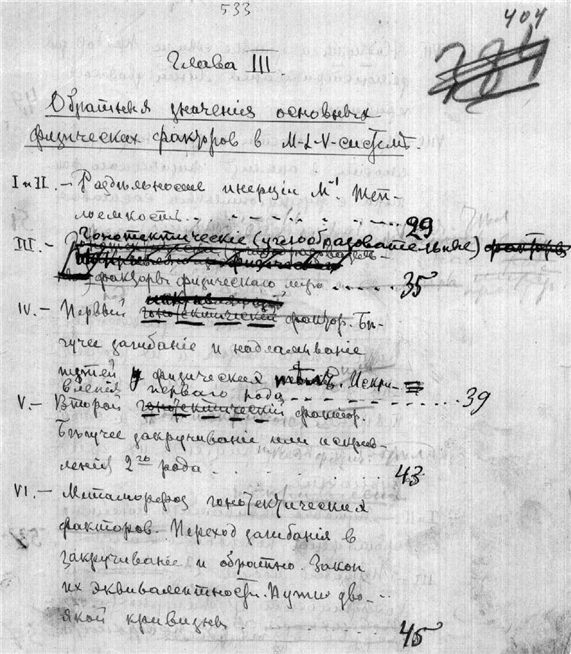 533
404
Глава III.
Обратныя значения основных
физических факторов в M-L-V-системѣ.
I и II. – Раздѣльность инерции M⁻¹ Теп-
лоемкость. . . . . . . . 29
III. – Гонотектические (углообразовательные)
факторы физическаго мира . . . . 35
IV. – Первый гонотектический фактор. Бѣ-
гучее загибание и надламывание
путей физическия. Искри-
вления перваго рода . . . . . . 39
V. – Второй гонотектический фактор.
Бѣгучее закручивание или искрив-
ления 2го рода . . . . 43
VI. – Метаморфоз гонотектическия
факторов. Переход загибания в
закручивание и обратно. Закон
их эквивалентности. Пути дво-
якой кривизны . . . . 45